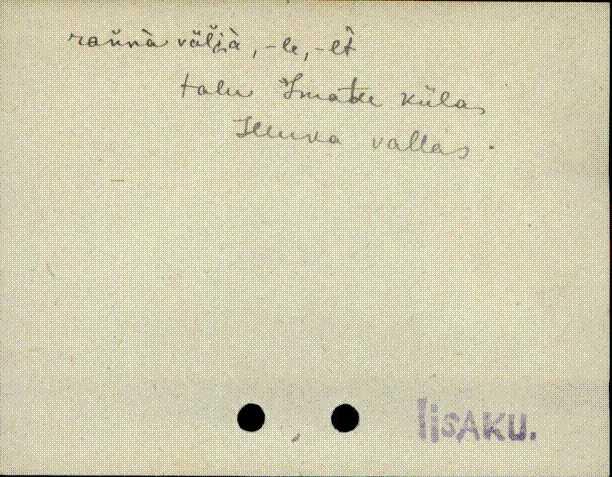 rañnà väljà, -le, -lt
talu Imatu külas
Illuka vallas.
IisAKU.